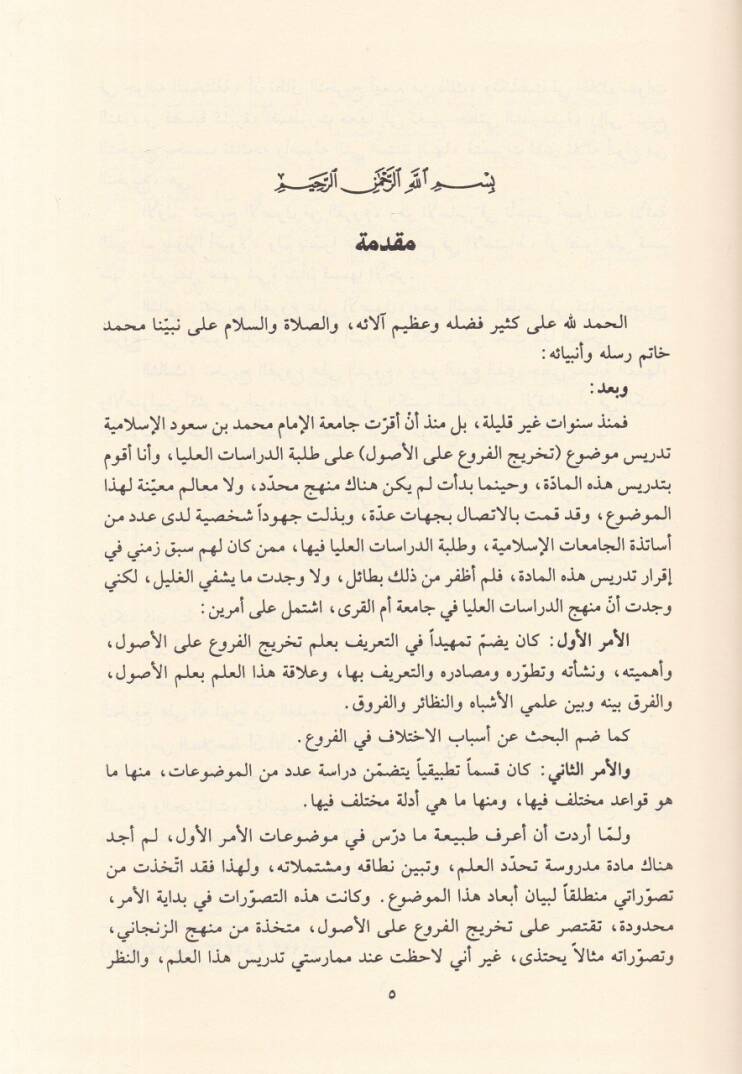 بِسْمِ اللَّهِ الرَّحْمَٰنِ الرَّحِيمِ
مقدمة
الحمد لله على كثير فضله وعظيم آلائه، والصلاة والسلام على نبيّنا محمد
خاتم رسله وأنبيائه:
وبعد:
فمنذ سنوات غير قليلة، بل منذ أنْ أقرّت جامعة الإمام محمد بن سعود الإسلامية
تدريس موضوع (تخريج الفروع على الأصول) على طلبة الدراسات العليا، وأنا أقوم
بتدريس هذه المادّة، وحينما بدأت لم يكن هناك منهج محدّد، ولا معالم معيّنة لهذا
الموضوع، وقد قمت بالاتصال بجهات عدّة، وبذلت جهوداً شخصية لدى عدد من
أساتذة الجامعات الإسلامية، وطلبة الدراسات العليا فيها، ممن كان لهم سبق زمني في
إقرار تدريس هذه المادة، فلم أظفر من ذلك بطائل، ولا وجدت ما يشفي الغليل، لكني
وجدت أنّ منهج الدراسات العليا في جامعة أم القرى، اشتمل على أمرين:
الأمر الأول: كان يضمّ تمهيداً في التعريف بعلم تخريج الفروع على الأصول،
وأهميته، ونشأته وتطوّره ومصادره والتعريف بها، وعلاقة هذا العلم بعلم الأصول،
والفرق بينه وبين علمي الأشباه والنظائر والفروق.
كما ضم البحث عن أسباب الاختلاف في الفروع.
والأمر الثاني: كان قسماً تطبيقياً يتضمّن دراسة عدد من الموضوعات، منها ما
هو قواعد مختلف فيها، ومنها ما هي أدلة مختلف فيها.
ولمّا أردت أن أعرف طبيعة ما درّس في موضوعات الأمر الأول، لم أجد
هناك مادة مدروسة تحدّد العلم، وتبين نطاقه ومشتملاته، ولهذا فقد اتّخذت من
تصوّراتي منطلقاً لبيان أبعاد هذا الموضوع. وكانت هذه التصوّرات في بداية الأمر،
محدودة، تقتصر على تخريج الفروع على الأصول، متخذة من منهج الزنجاني،
وتصوّراته مثالاً يحتذى، غير أني لاحظت عند ممارستي تدريس هذا العلم، والنظر
٥